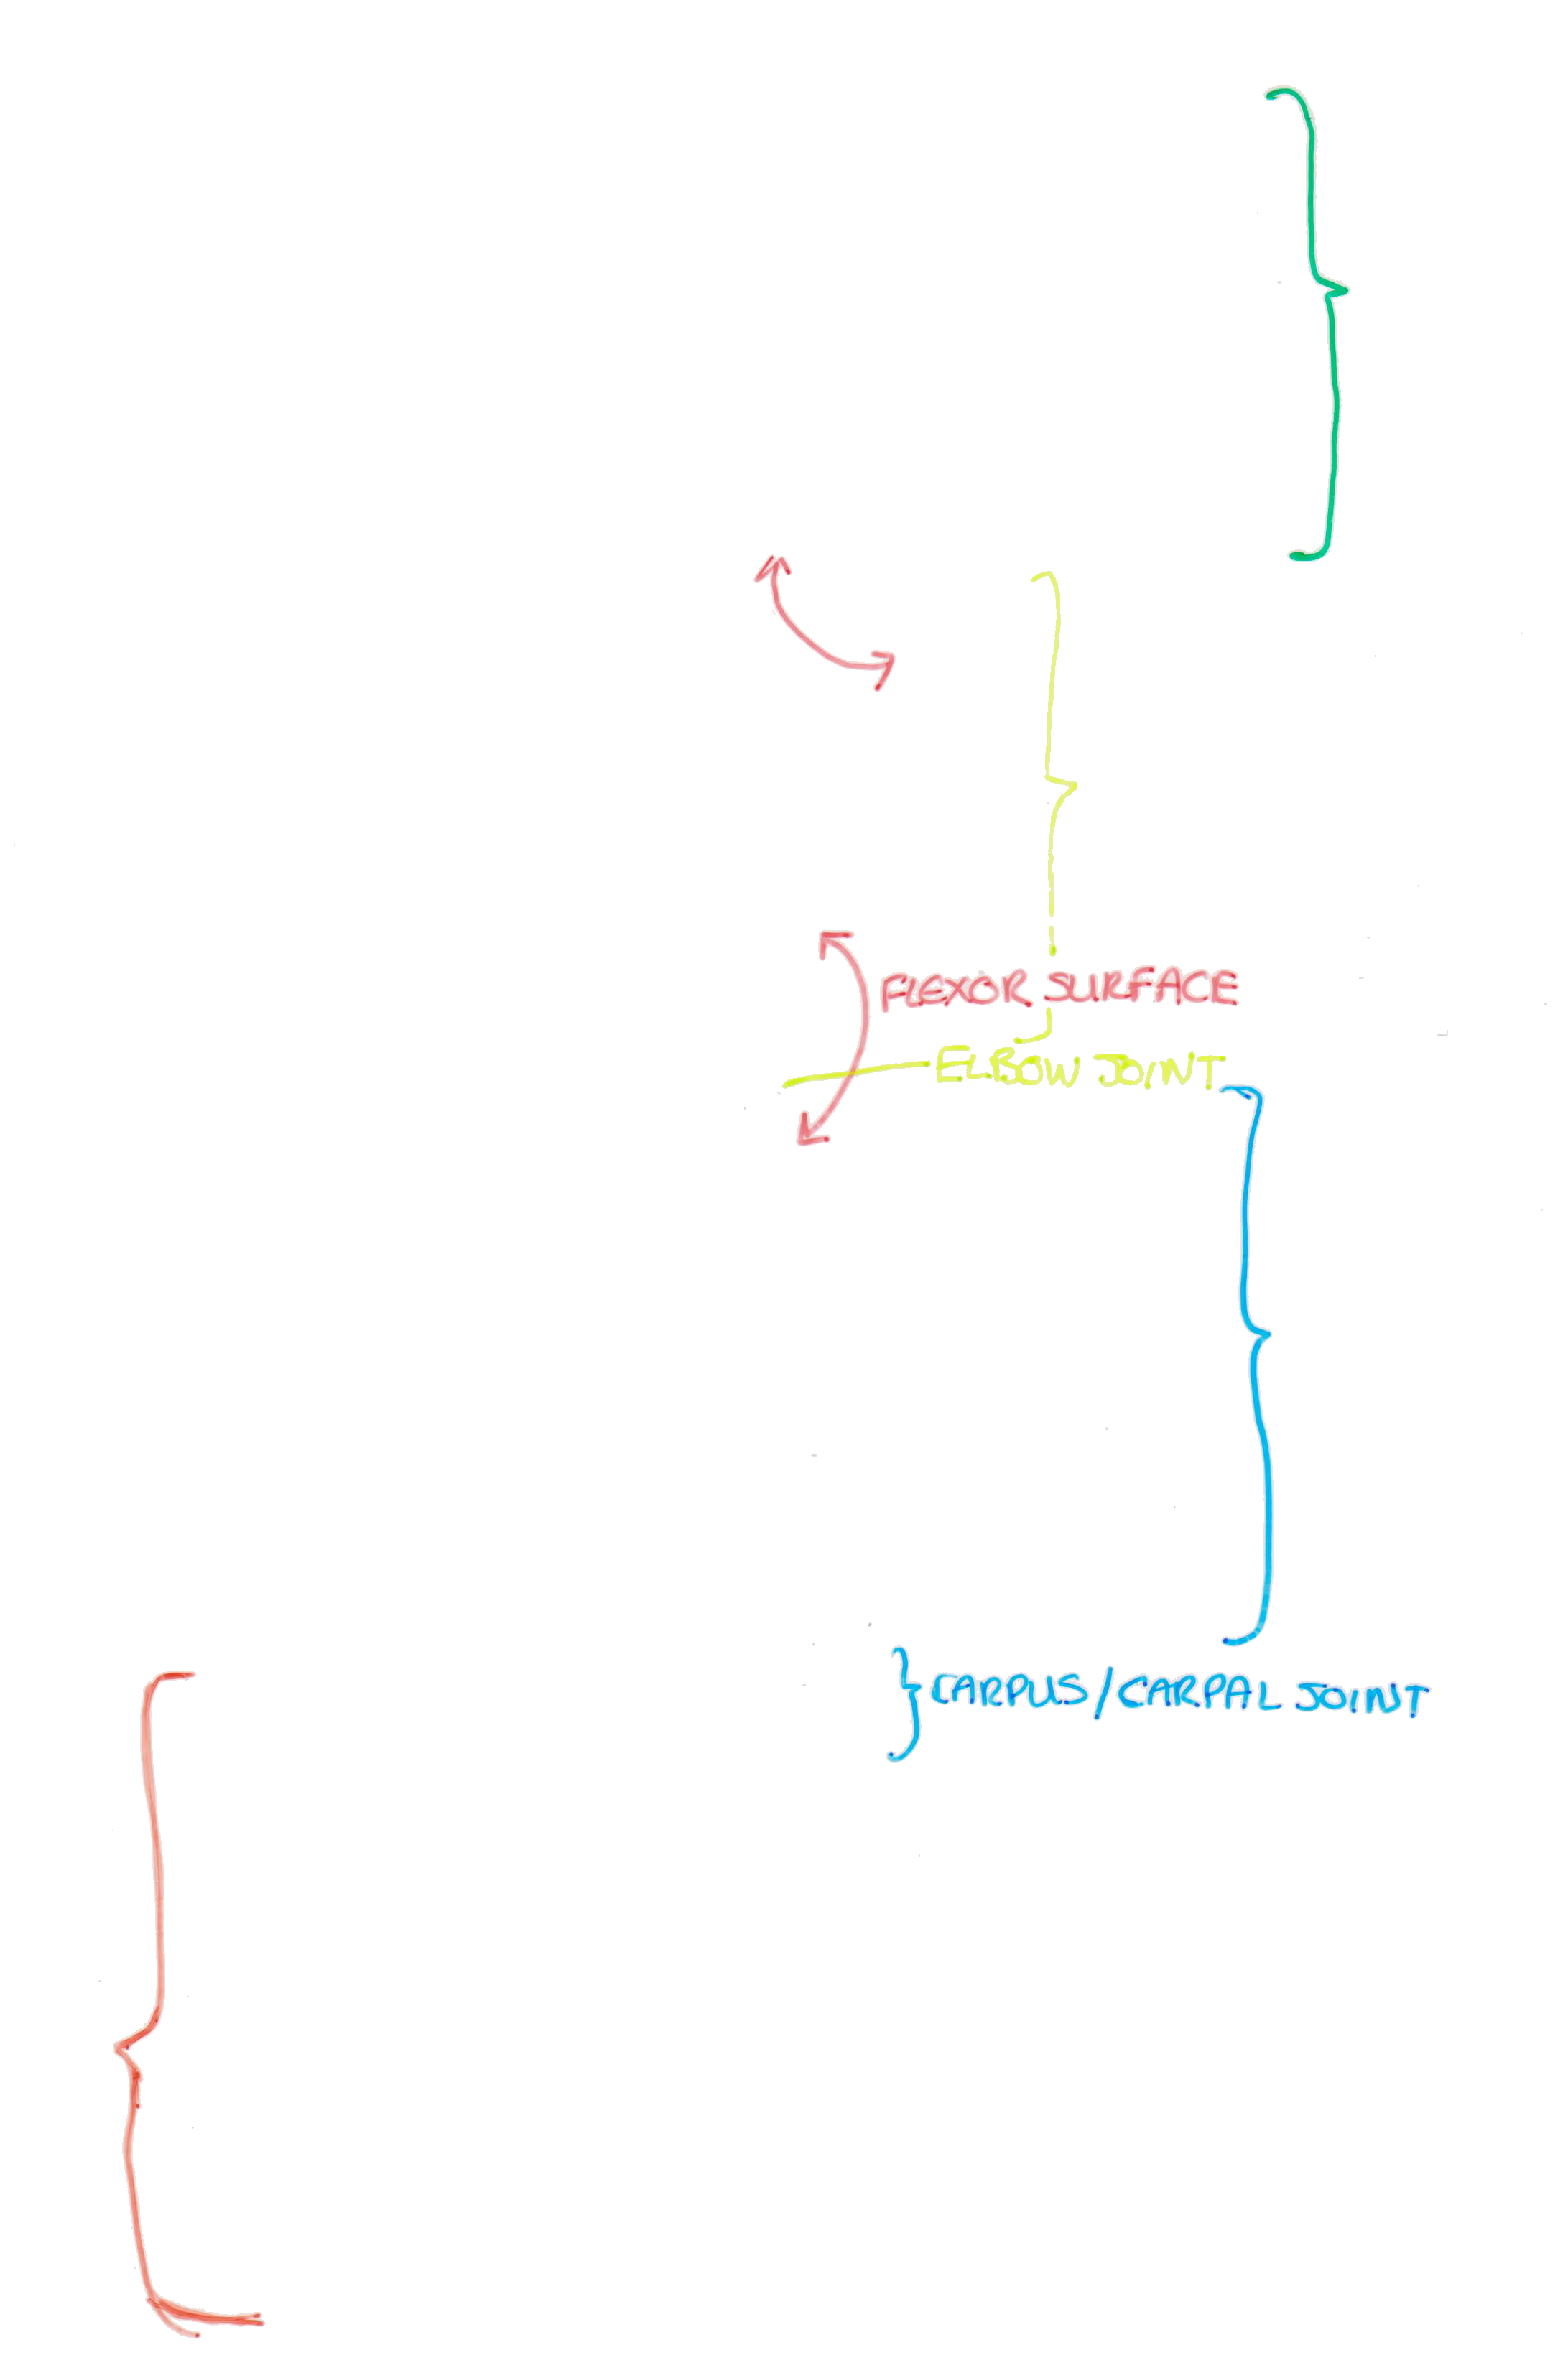 FLEXOR SURFACE
ELBOW JOINT
CARPUS/CARPAL JOINT